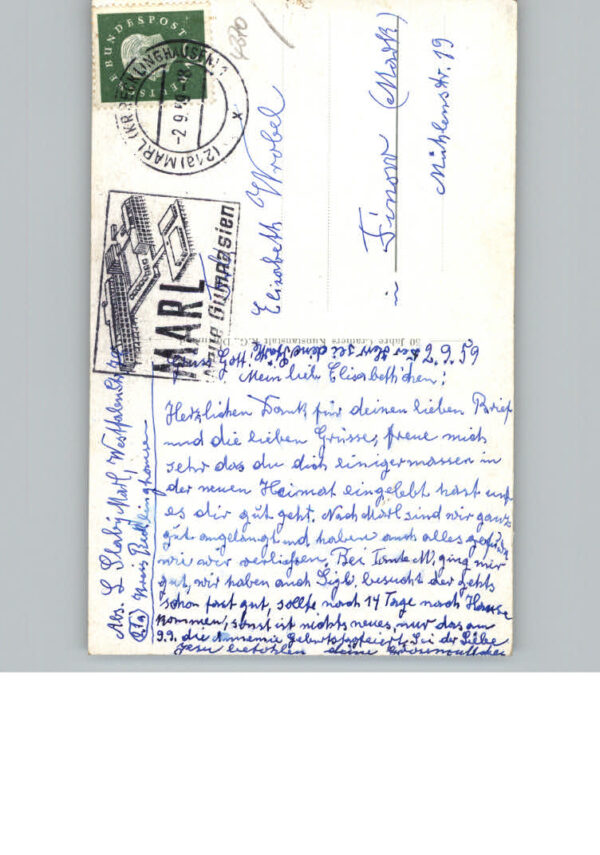 DEUTSCHE BUNDESPOST
(21a) MARL (KR. RECKLINGHAUSEN) 1
-2.9.59-18
MARL
Gymnasien
4370
Elisabeth Wrobel
in Finow (Mark)
Mühlenstr. 19
50 Jahre Crauners Kunstanstalt K.G.
2.9.59
Der Herr sei deine Stärke
Mein lieb. Elisabethchen!
Herzlichen Dank für deinen lieben Brief
und die lieben Grüsse, freue mich
sehr das du dich einigermassen in
der neuen Heimat eingelebt hast und
es dir gut geht. Nach Marl sind wir ganz
gut angelangt und haben auch alles
wie wir verliessen. Bei Tante M. ging mir
gut, wir haben auch Sigb. besucht der gehts
schon fast gut, sollte nach 14 Tage nach Hause
kommen, sonst ist nichts neues, nur das am
9.9. die Annemie Geburtstag feiert. Sei der Liebe
Jesu befohlen deine
Abs. L Slaby Marl, Westfalenstr.
(21a) Kreis Recklinghausen